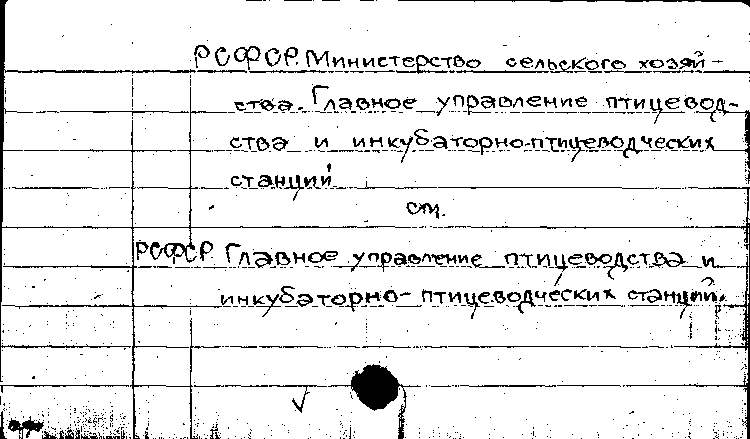 РСФСР. Министерство сельского хозяй-
ства. Главное управление птицевод-
ства и инкубаторно-птицеводческих
станций
см.
РСФСР. Главное управление птицеводства и
инкубаторно-птицеводческих станций.